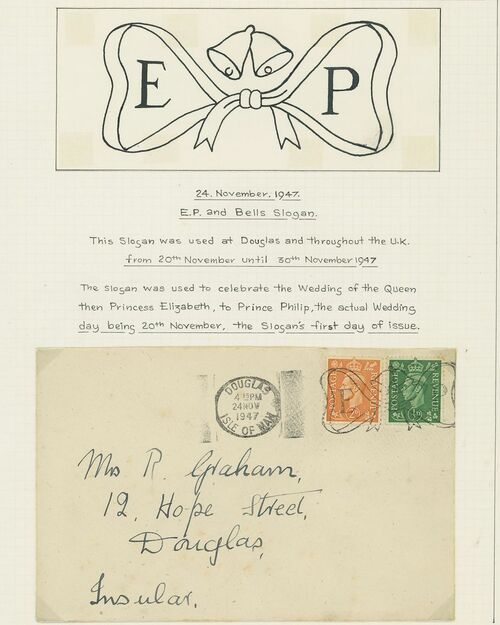 E P
24. November. 1947.
E.P. and Bells Slogan.
This Slogan was used at Douglas and throughout the U.K.
from 20th November until 30th November 1947
The slogan was used to celebrate the Wedding of the Queen
then Princess Elizabeth, to Prince Philip, the actual Wedding
day being 20th November, the Slogan's first day of issue.
DOUGLAS
PM
24 NOV
1947
ISLE OF MAN
POSTAGE REVENUE
POSTAGE REVENUE
P
Mr R. Graham,
12, Hope Street,
Douglas,
Insular.